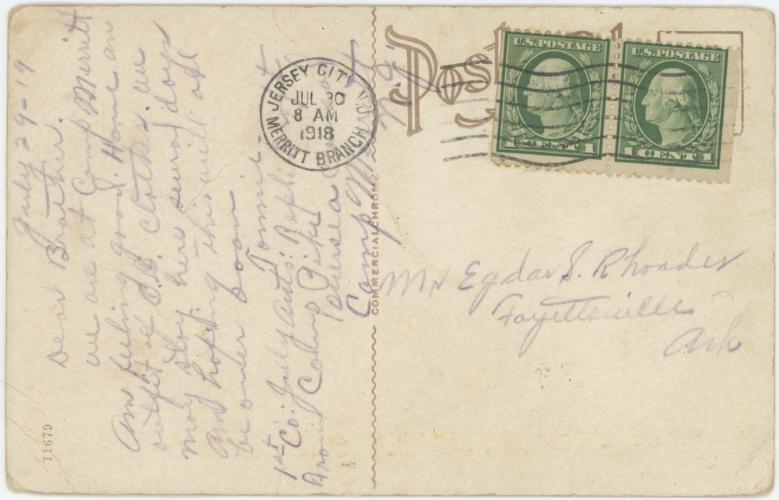 July 29-19
Dear Brother.
we are at Camp Merritt
Am feeling good. Have an
outfit of O.D. clothes. we
may stay here several days
Am hoping this will all
be over soon
Tommie
1st Co: July Auto: Repl
Camp Pike
Oversea
Camp Merritt
N.J.
COMMERCIALCHROME
11679
Post
JERSEY CITY N.J.
JUL 30
8 AM
1918
MERRITT BRANCH
U.S. POSTAGE
1 CENT 1
U.S. POSTAGE
1 CENT 1
Mr Egdar S. Rhoades
Fayettsville
Ark